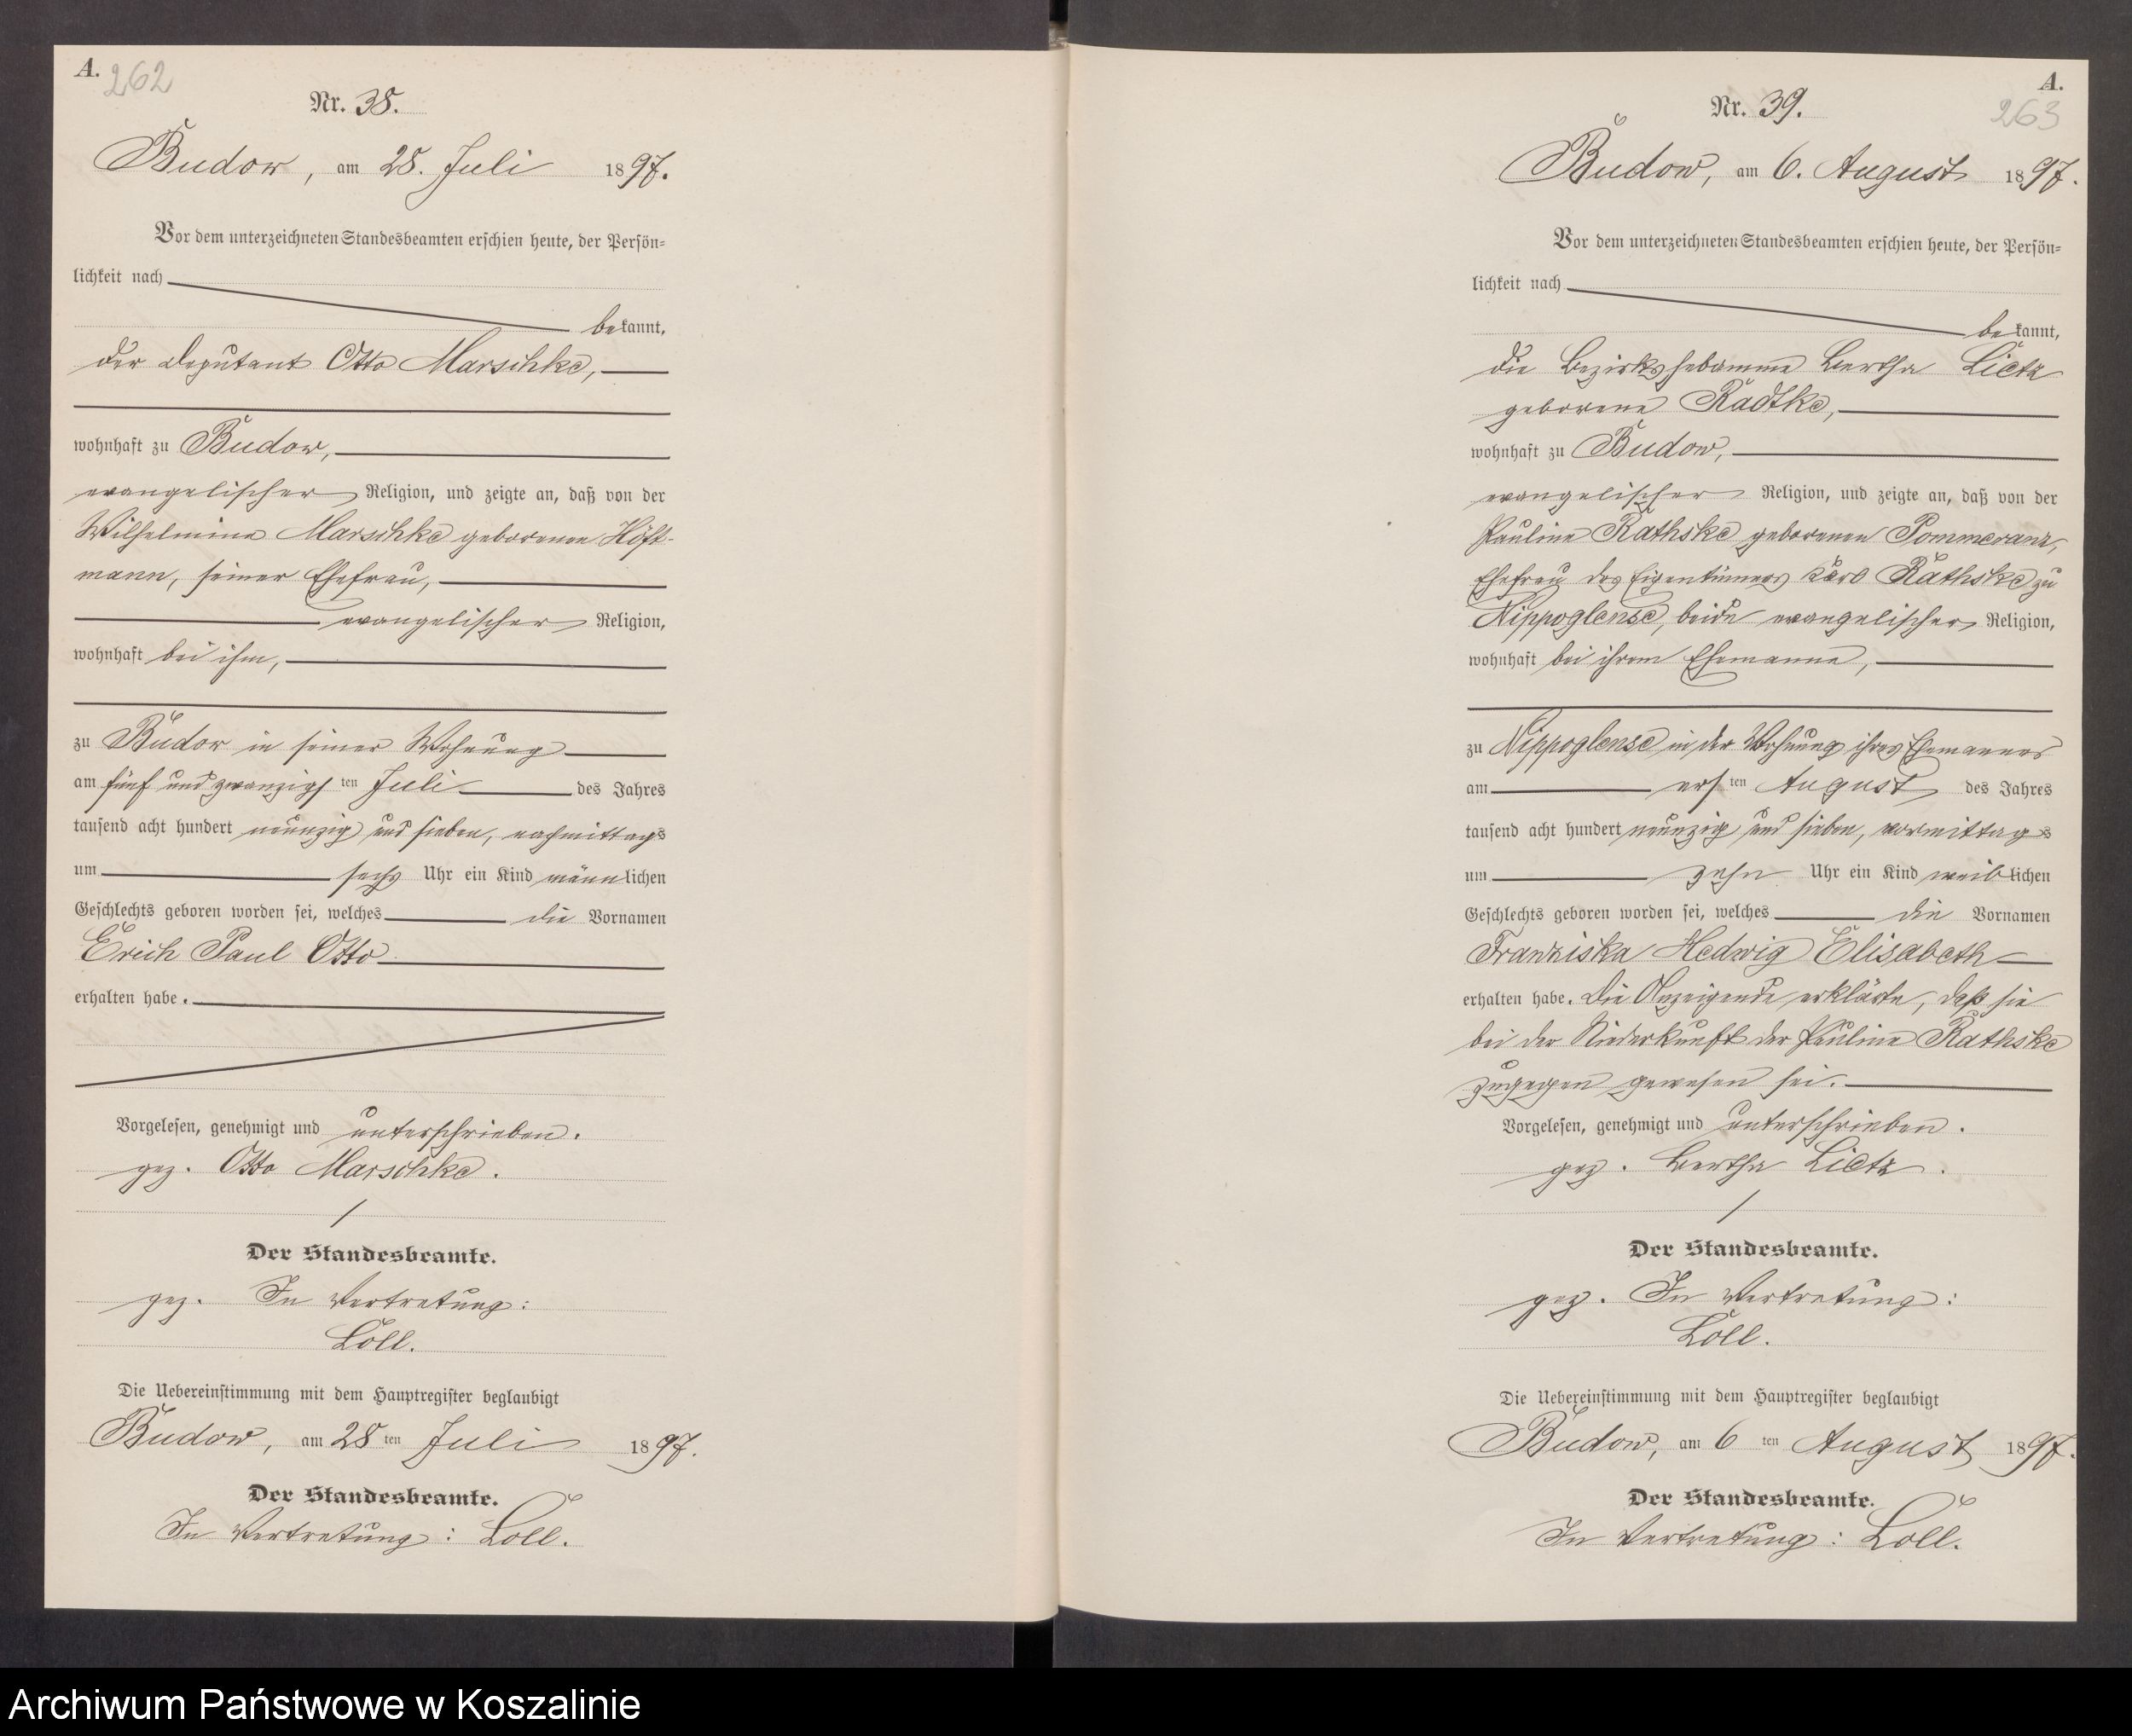 A.
262
Nr. 38.
Budow, am 28. Juli 1897.
Vor dem unterzeichneten Standesbeamten erschien heute, der Persön-
lichkeit nach
bekannt,
der Deputant Otto Marschke,
wohnhaft zu Budow,
evangelischer Religion, und zeigte an, daß von der
Wilhelmine Marschke geborenen Höft-
mann, seiner Ehefrau,
evangelischer Religion,
wohnhaft bei ihm,
zu Budow in seiner Wohnung
am fünf und zwanzigsten Juli des Jahres
tausend acht hundert neunzig und sieben, nachmittags
um sechs Uhr ein Kind männlichen
Geschlechts geboren worden sei, welches die Vornamen
Erich Paul Otto
erhalten habe.
Vorgelesen, genehmigt und unterschrieben.
gez. Otto Marschke.
Der Standesbeamte.
gez. In Vertretung:
Loll.
Die Uebereinstimmung mit dem Hauptregister beglaubigt
Budow, am 28ten Juli 1897.
Der Standesbeamte.
In Vertretung: Loll.
A.
263
Nr. 39.
Budow, am 6. August 1897.
Vor dem unterzeichneten Standesbeamten erschien heute, der Persön-
lichkeit nach
bekannt,
die Bezirkshebamme Bertha Lietz
geborene Radtke,
wohnhaft zu Budow,
evangelischer Religion, und zeigte an, daß von der
Pauline Rathske geborenen Pommeranz,
Ehefrau des Eigentümers Karl Rathske zu
Nippoglense, beide evangelischer Religion,
wohnhaft bei ihrem Ehemanne,
zu Nippoglense in der Wohnung ihres Ehemannes
am ersten August des Jahres
tausend acht hundert neunzig und sieben, vormittags
um zehn Uhr ein Kind weiblichen
Geschlechts geboren worden sei, welches die Vornamen
Franziska Hedwig Elisabeth
erhalten habe. Die Anzeigende erklärte, daß sie
bei der Niederkunft der Pauline Rathske
zugegen gewesen sei.
Vorgelesen, genehmigt und unterschrieben.
gez. Bertha Lietz.
Der Standesbeamte.
gez. In Vertretung:
Loll.
Die Uebereinstimmung mit dem Hauptregister beglaubigt
Budow, am 6ten August 1897.
Der Standesbeamte.
In Vertretung: Loll.
Archiwum Państwowe w Koszalinie